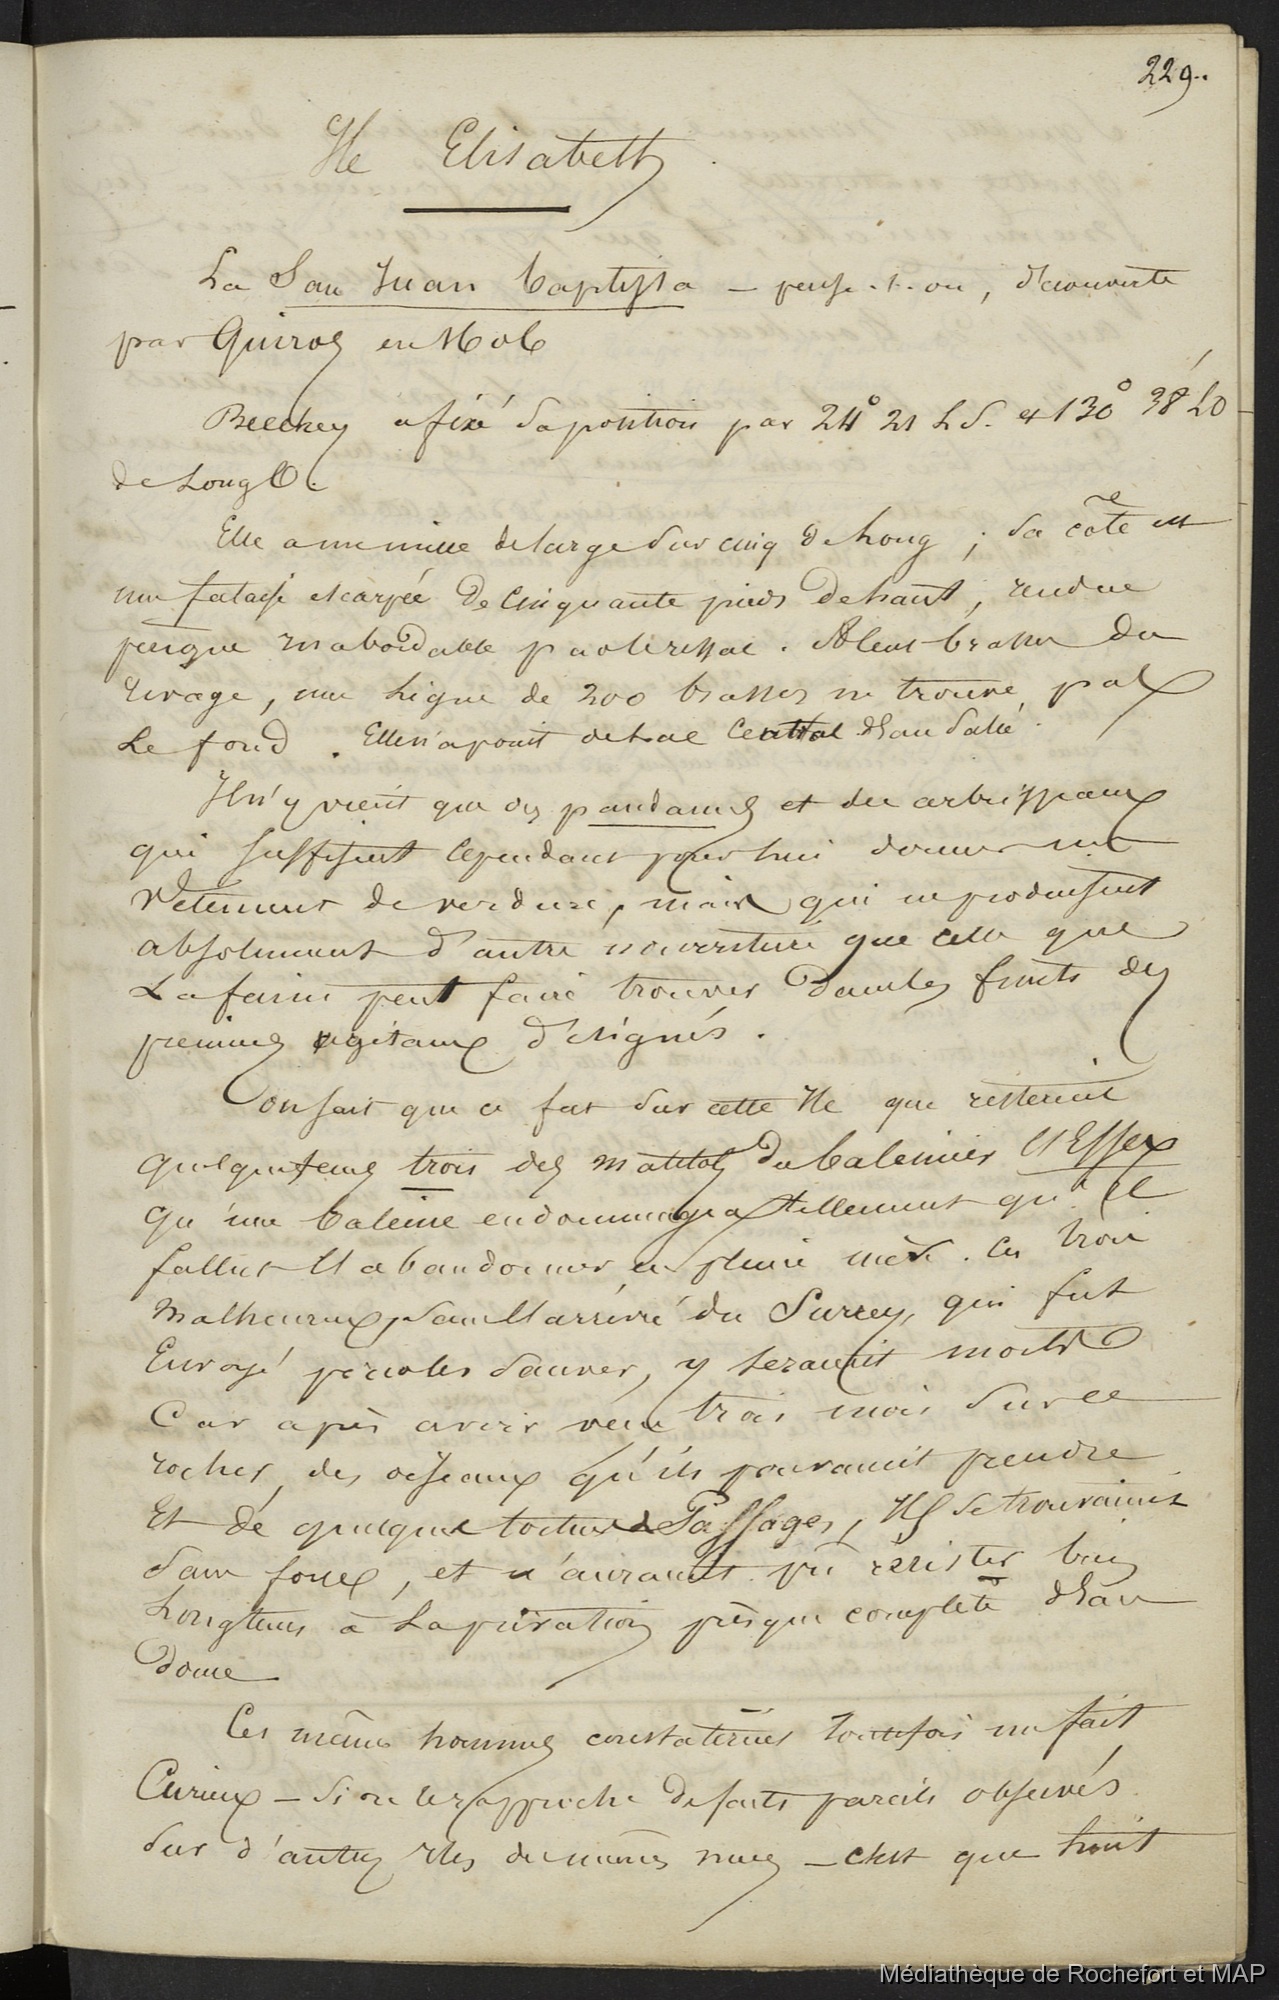 229..
Ile Elisabeth.
La San Juan Baptista – pense-t-on, découverte
par Quiros en 1606
Beechey a fixé sa position par 24° 21 L S. et 130° 38'
de Long O.
Elle a un mille de large sur cinq de long ; sa côte est
une falaise escarpée de cinquante pieds de haut, rendue
presque inabordable par le ressac. A cent brasses du
rivage, une ligne de 200 brasses ne trouve pas
le fond. Elle n'a point de lac central d'eau salée.
Il n'y vient que des pandanus et des arbrisseaux
qui suffisent cependant pour lui donner un
vêtement de verdure, mais qui ne produisent
absolument d'autre nourriture que celle que
la faim peut faire trouver dans les fruits des
premiers végétaux désignés.
On sait que ce fut sur cette Ile que restèrent
quelque tems trois des matelots du baleinier l'Essex
qu'une baleine endommagea tellement qu'il
fallut l'abandonner en pleine mer. Ces trois
malheureux, sans l'arrivée du Surrey, qui fut
envoyé pour les sauver, y seraient morts
Car après avoir vécu trois mois sur ce
rocher, des oiseaux qu'ils pouvaient prendre
et de quelques tortues de Passages, Ils se trouvaient
sans forces, et n'auraient pu résister bien
longtems à la privation presque complète d'eau
douce
Ces mêmes hommes constatèrent toutefois un fait
Curieux – si on le rapproche de faits pareils observés
sur d'autres Iles des mêmes mers – c'est que huit
Médiathèque de Rochefort et MAP